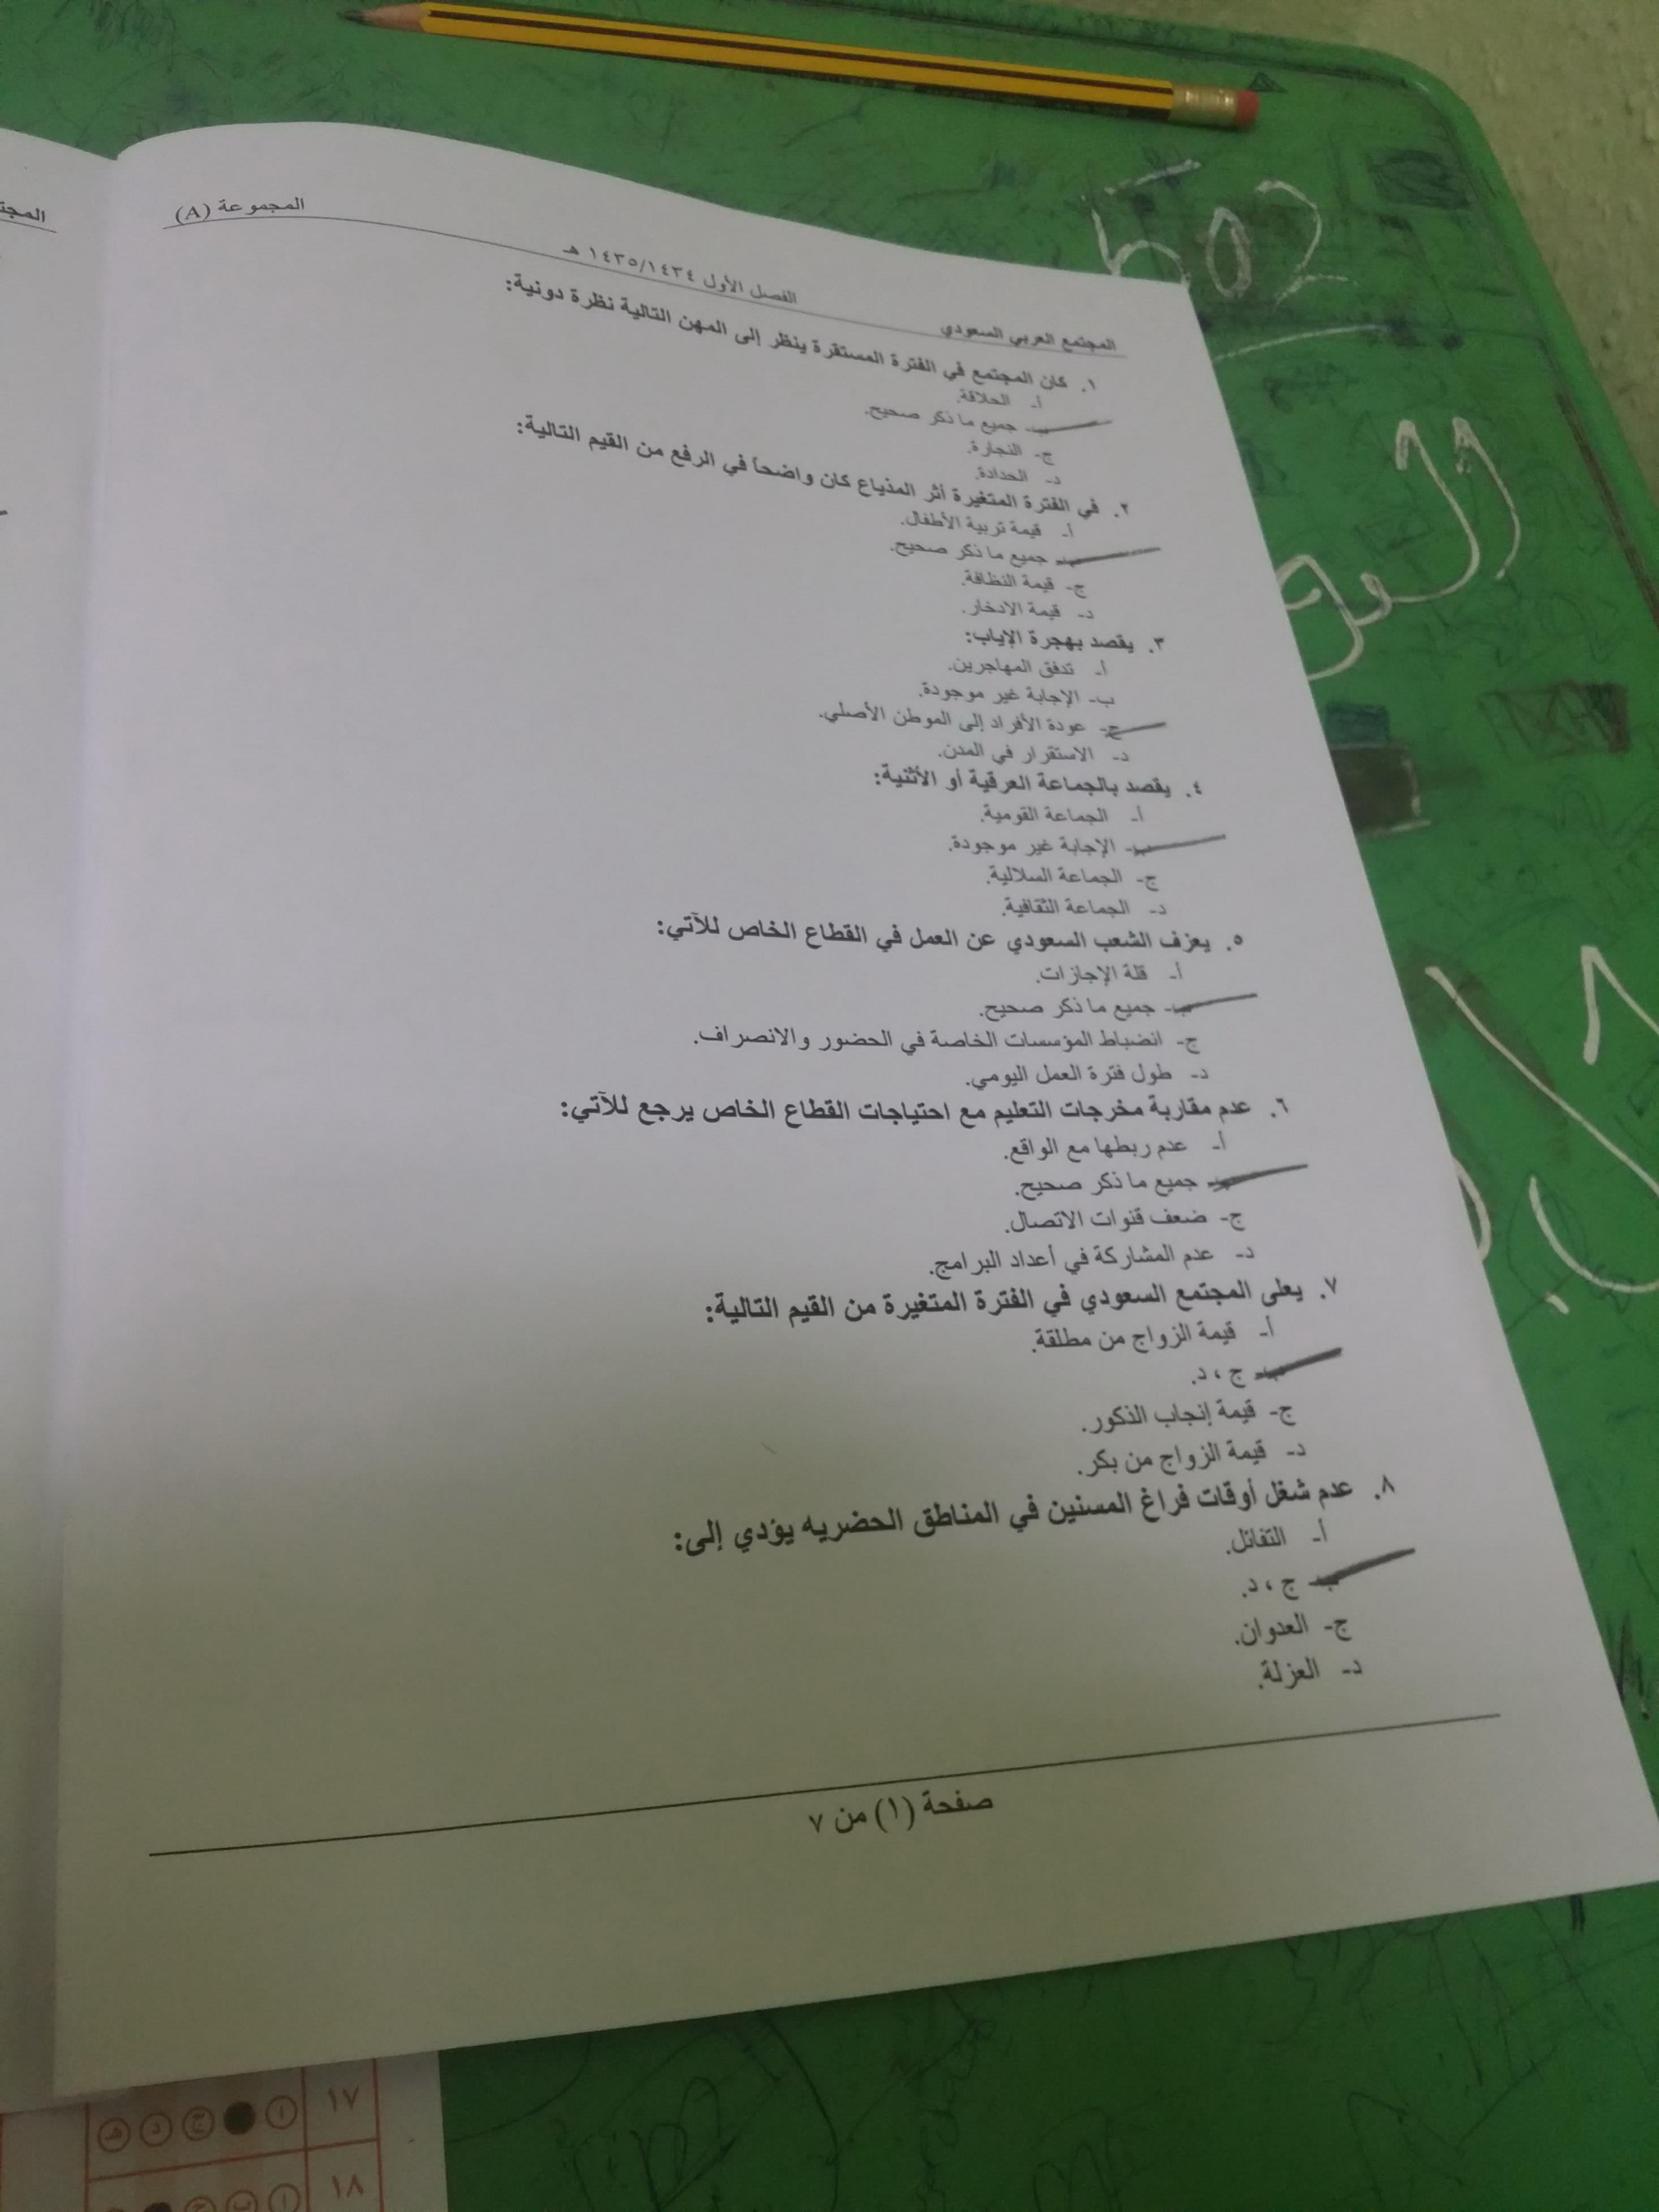 المجتمع العربي السعودي
الفصل الأول ١٤٣٥/١٤٣٤ هـ
المجموعة (A)
١. كان المجتمع في الفترة المستقرة ينظر إلى المهن التالية نظرة دونية:
أ- الحلاقة.
ب- جميع ما ذكر صحيح.
ج- النجارة.
د- الحدادة.
٢. في الفترة المتغيرة أثر المذياع كان واضحاً في الرفع من القيم التالية:
أ- قيمة تربية الأطفال.
ب- جميع ما ذكر صحيح.
ج- قيمة النظافة.
د- قيمة الادخار.
٣. يقصد بهجرة الإياب:
أ- تدفق المهاجرين.
ب- الإجابة غير موجودة.
ج- عودة الأفراد إلى الموطن الأصلي.
د- الاستقرار في المدن.
٤. يقصد بالجماعة العرقية أو الأثنية:
أ- الجماعة القومية.
ب- الإجابة غير موجودة.
ج- الجماعة السلالية.
د- الجماعة الثقافية.
٥. يعزف الشعب السعودي عن العمل في القطاع الخاص للآتي:
أ- قلة الإجازات.
ب- جميع ما ذكر صحيح.
ج- انضباط المؤسسات الخاصة في الحضور والانصراف.
د- طول فترة العمل اليومي.
٦. عدم مقاربة مخرجات التعليم مع احتياجات القطاع الخاص يرجع للآتي:
أ- عدم ربطها مع الواقع.
ب- جميع ما ذكر صحيح.
ج- ضعف قنوات الاتصال.
د- عدم المشاركة في أعداد البرامج.
٧. يعلى المجتمع السعودي في الفترة المتغيرة من القيم التالية:
أ- قيمة الزواج من مطلقة.
ب- ج ، د.
ج- قيمة إنجاب الذكور.
د- قيمة الزواج من بكر.
٨. عدم شغل أوقات فراغ المسنين في المناطق الحضريه يؤدي إلى:
أ- التفائل.
ب- ج ، د.
ج- العدوان.
د- العزلة.
صفحة (١) من ٧
502
١٧ ا ج د هـ
١٨ ا ب ج